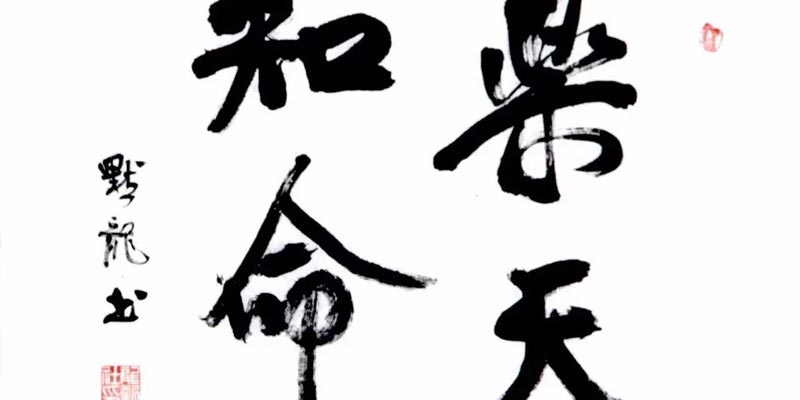 樂天
知命
默龍书